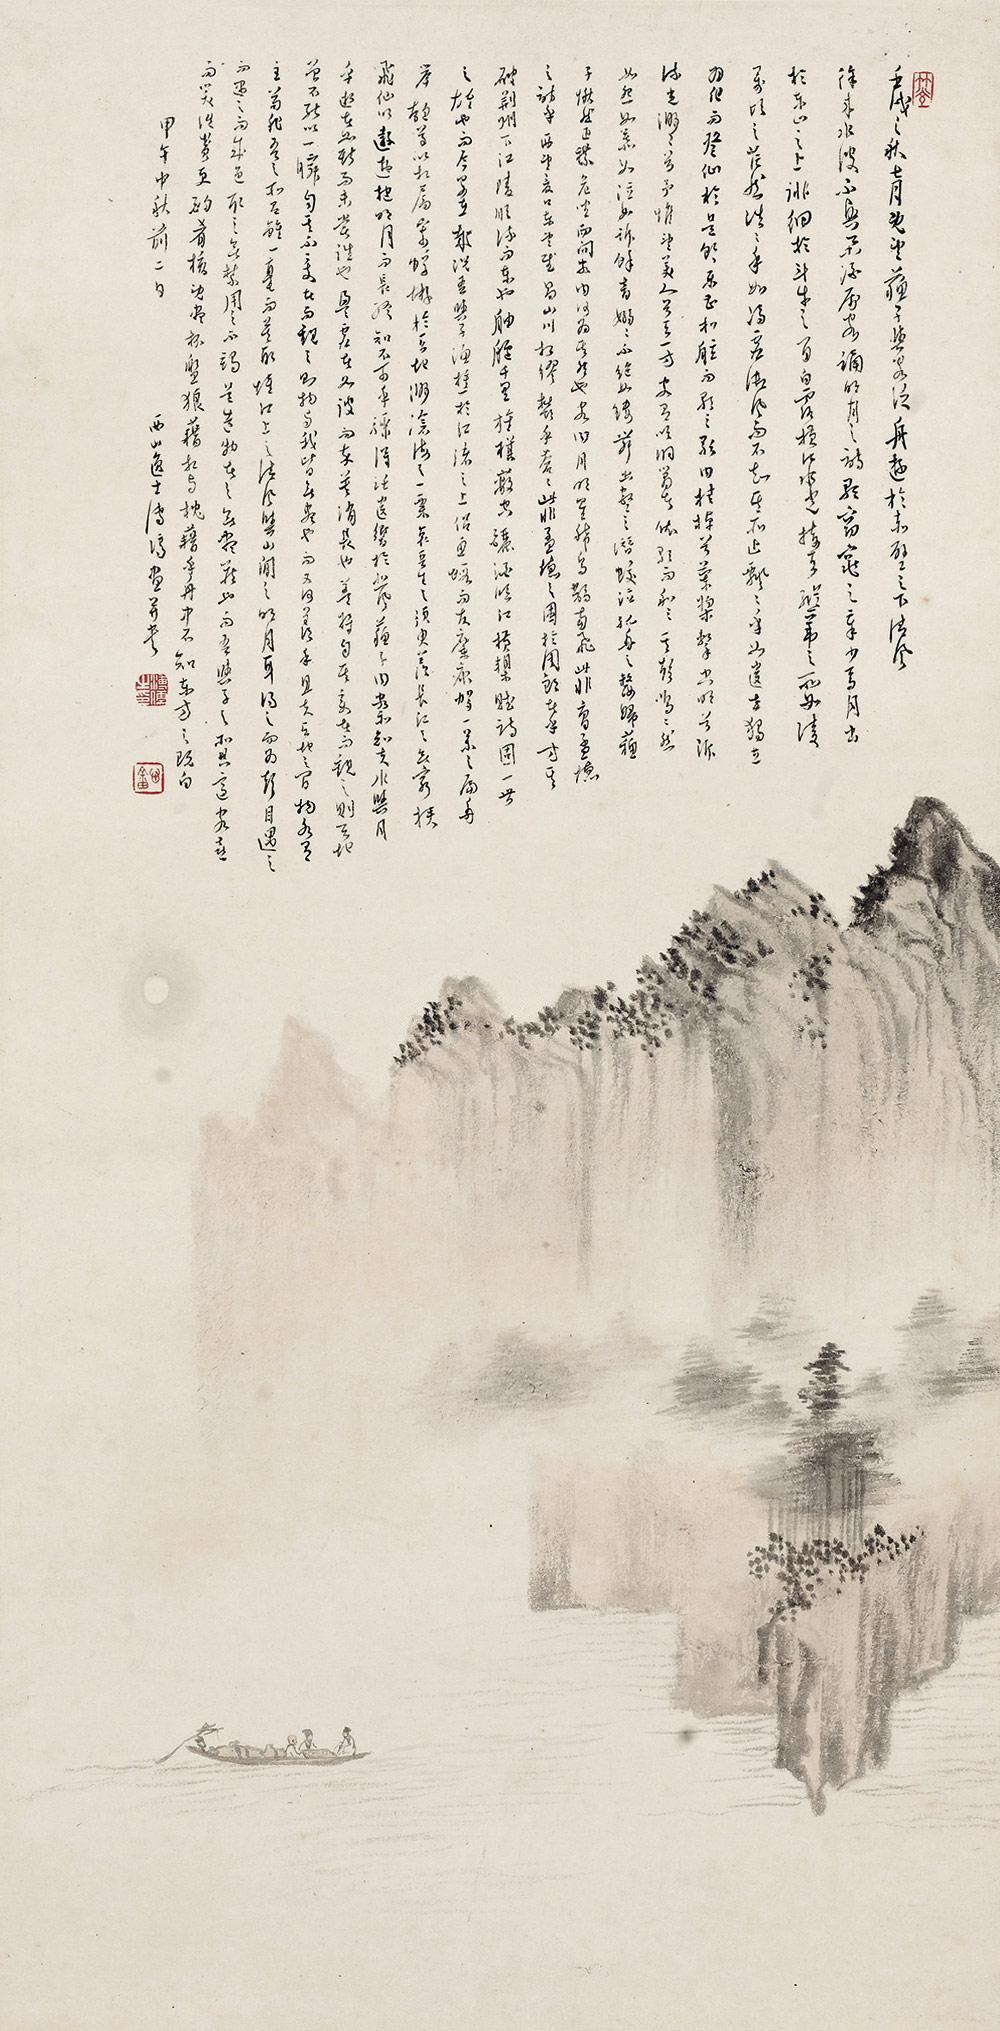 壬戌之秋七月既望蘇子與客泛舟遊於赤壁之下清風
徐來水波不興舉酒屬客誦明月之詩歌窈窕之章少焉月出
於東山之上徘徊於斗牛之間白露橫江水光接天縱一葦之所如凌
萬頃之茫然浩浩乎如馮虛御風而不知其所止飄飄乎如遺世獨立
羽化而登仙於是飲酒樂甚扣舷而歌之歌曰桂棹兮蘭槳擊空明兮泝
流光渺渺兮予懷望美人兮天一方客有吹洞簫者依歌而和之其聲嗚嗚然
如怨如慕如泣如訴餘音嫋嫋不絕如縷舞幽壑之潛蛟泣孤舟之嫠婦蘇
子愀然正襟危坐而問客曰何為其然也客曰月明星稀烏鵲南飛此非曹孟德
之詩乎西望夏口東望武昌山川相繆鬱乎蒼蒼此非孟德之困於周郎者乎方其
破荊州下江陵順流而東也舳艫千里旌旗蔽空釃酒臨江橫槊賦詩固一世
之雄也而今安在哉況吾與子漁樵於江渚之上侶魚蝦而友麋鹿駕一葉之扁舟
舉匏尊以相屬寄蜉蝣於天地渺滄海之一粟哀吾生之須臾羨長江之無窮挾
飛仙以遨遊抱明月而長終知不可乎驟得託遺響於悲風蘇子曰客亦知夫水與月
乎逝者如斯而未嘗往也盈虛者如彼而卒莫消長也蓋將自其變者而觀之則天地
曾不能以一瞬自其不變者而觀之則物與我皆無盡也而又何羨乎且夫天地之間物各有
主苟非吾之所有雖一毫而莫取惟江上之清風與山間之明月耳得之而為聲目遇之
而成色取之無禁用之不竭是造物者之無盡藏也而吾與子之所共適客喜
而笑洗盞更酌肴核既盡杯盤狼藉相與枕藉乎舟中不知東方之既白
甲午中秋前二日
西山逸士溥儒畫并書